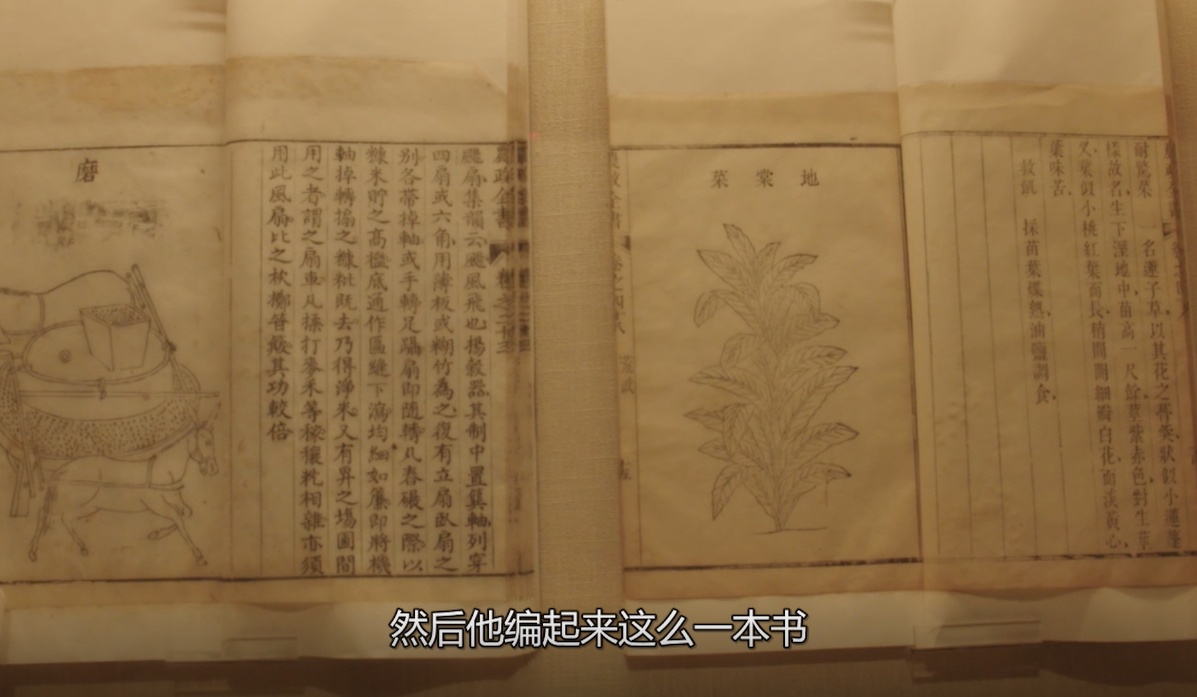 耐驚菜 一名蓮子草以其花之骨葖狀似小蓮蓬
樣故名生下溼地中苗高一尺餘莖紫赤色對生莖
叉葉似小桃紅葉而長梢間開細瓣白花而淡黃心
葉味苦
救飢 採苗葉煠熟油鹽調食
地棠菜
農政全書 卷之二十三
颺扇集韻云颺風飛也揚穀器其制中置簨軸列穿
四扇或六角用薄板或糊竹為之復有立扇臥扇之
別各帶掉軸或手轉足躡扇即隨轉凡舂碾之際以
糠米貯之高檻底通作匾縫下瀉均細如簾即將機
軸掉轉搧之糠粃既去乃得淨米又有舁之場圃間
用之者謂之扇車凡揉打麥禾等稼穰籺相雜亦須
用此風扇比之杴擲箕簸其功較倍
磨
然后他编起来这么一本书